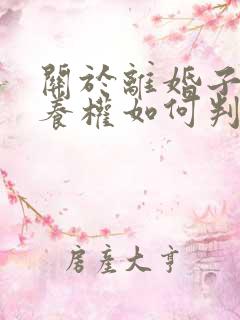 關於離婚子
養權如何判
房產大亨